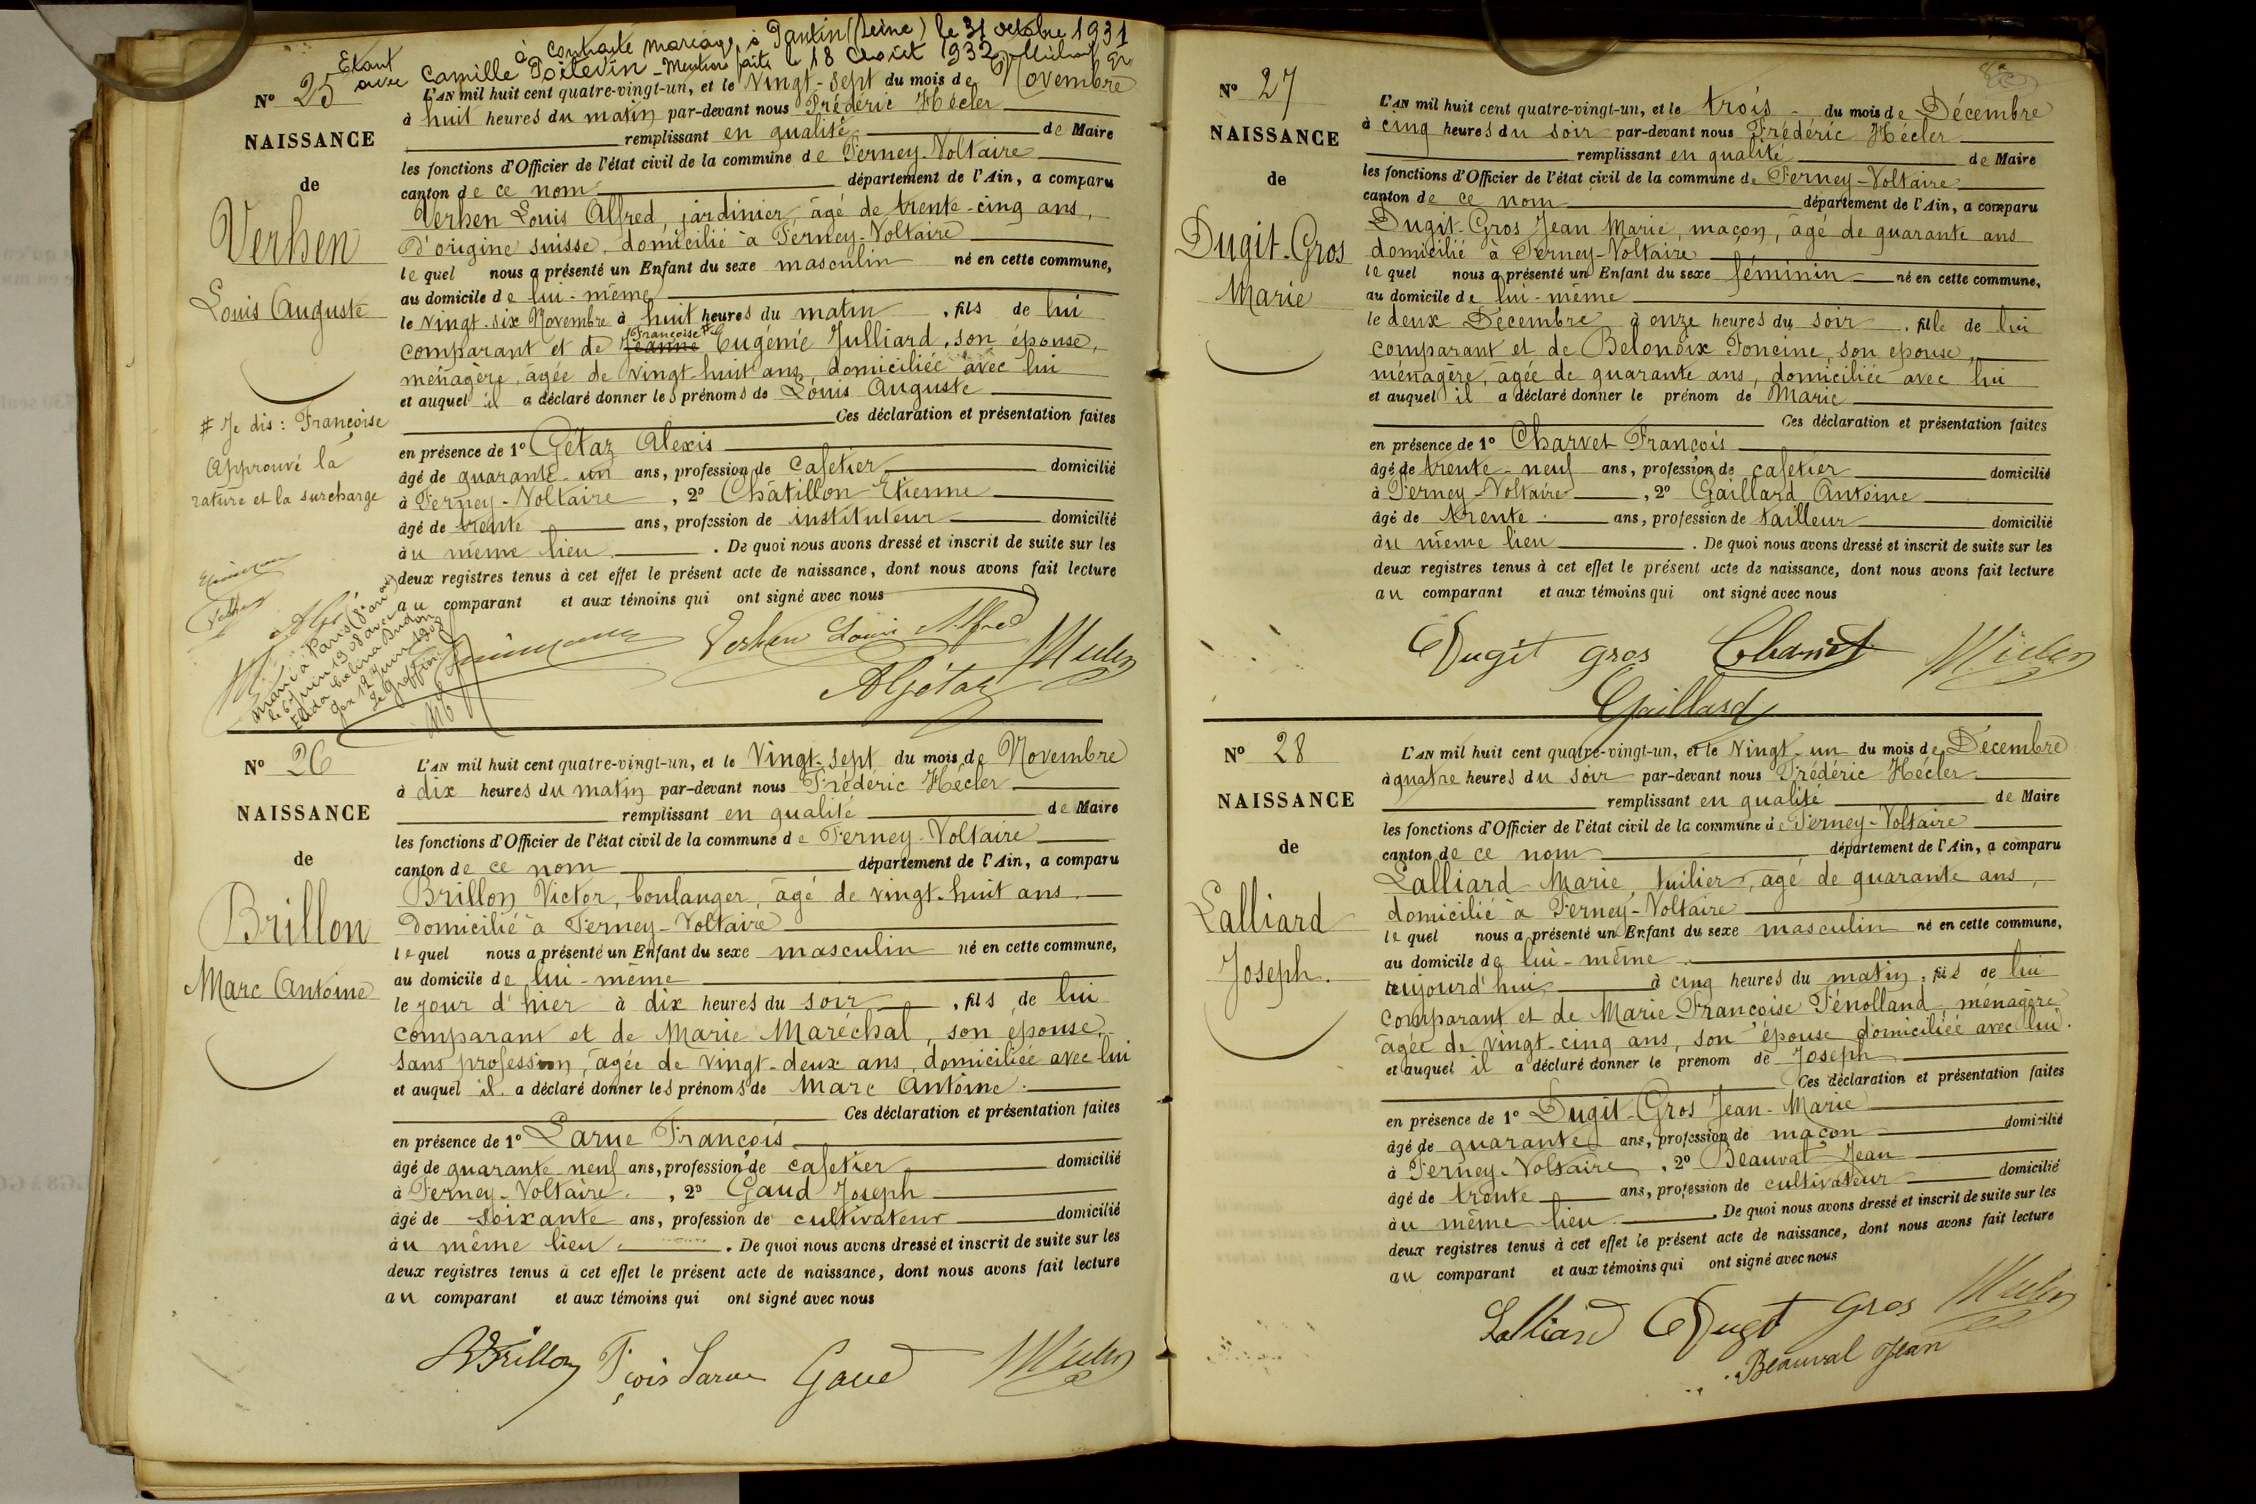 Etant
à contracté mariage à Pantin (Seine) le 31 octobre 1931
avec Camille Poitevin - Mention faite le 18 Août 1932
N° 25
NAISSANCE
de
Verhen
Louis Auguste
# Je dis : Françoise
Approuvé la
rature et la surcharge
Marié à Paris
le 6 juin 1908 avec
Gex 12 juin 1908
Le Greffier
L'AN mil huit cent quatre-vingt-un, et le Vingt-sept du mois de Novembre
à huit heures du matin par-devant nous Frédéric Hécler
remplissant en qualité de Maire
les fonctions d'Officier de l'état civil de la commune de Ferney-Voltaire
canton de ce nom département de l'Ain, a comparu
Verhen Louis Alfred, jardinier, âgé de trente-cinq ans,
d'origine suisse, domicilié à Ferney-Voltaire
lequel nous a présenté un Enfant du sexe masculin né en cette commune,
au domicile de lui-même
le Vingt-six Novembre à huit heures du matin, fils de lui
Françoise #
comparant et de Jeanne Eugénie Julliard, son épouse,
ménagère, âgée de vingt-huit ans, domiciliée avec lui
et auquel il a déclaré donner les prénoms de Louis Auguste
Ces déclaration et présentation faites
en présence de 1° Gétaz Alexis
âgé de quarante-un ans, profession de cafetier domicilié
à Ferney-Voltaire, 2° Châtillon Etienne
âgé de trente ans, profession de instituteur domicilié
au même lieu. De quoi nous avons dressé et inscrit de suite sur les
deux registres tenus à cet effet le présent acte de naissance, dont nous avons fait lecture
au comparant et aux témoins qui ont signé avec nous
Verhen Louis Alfred
A Gétaz
N° 26
NAISSANCE
de
Brillon
Marc Antoine
L'AN mil huit cent quatre-vingt-un, et le Vingt-sept du mois de Novembre
à dix heures du matin par-devant nous Frédéric Hécler
remplissant en qualité de Maire
les fonctions d'Officier de l'état civil de la commune de Ferney-Voltaire
canton de ce nom département de l'Ain, a comparu
Brillon Victor, boulanger, âgé de vingt-huit ans
Domicilié à Ferney-Voltaire
lequel nous a présenté un Enfant du sexe masculin né en cette commune,
au domicile de lui-même
le jour d'hier à dix heures du soir, fils de lui
comparant et de Marie Maréchal, son épouse,
sans profession, âgée de vingt-deux ans, domiciliée avec lui
et auquel il a déclaré donner les prénoms de Marc Antoine.
Ces déclaration et présentation faites
en présence de 1° Larue François
âgé de quarante-neuf ans, profession de cafetier domicilié
à Ferney-Voltaire, 2° Gaud Joseph
âgé de soixante ans, profession de cultivateur domicilié
au même lieu. De quoi nous avons dressé et inscrit de suite sur les
deux registres tenus à cet effet le présent acte de naissance, dont nous avons fait lecture
au comparant et aux témoins qui ont signé avec nous
Brillon Fçois Larue Gaud
N° 27
NAISSANCE
de
Dugit-Gros
Marie
L'AN mil huit cent quatre-vingt-un, et le trois du mois de Décembre
à cinq heures du soir par-devant nous Frédéric Hécler
remplissant en qualité de Maire
les fonctions d'Officier de l'état civil de la commune de Ferney-Voltaire
canton de ce nom département de l'Ain, a comparu
Dugit-Gros Jean Marie, maçon, âgé de quarante ans
domicilié à Ferney-Voltaire
lequel nous a présenté un Enfant du sexe féminin né en cette commune,
au domicile de lui-même
le deux Décembre à onze heures du soir, fille de lui
comparant et de Belonoix Foncine, son épouse,
ménagère, âgée de quarante ans, domiciliée avec lui
et auquel il a déclaré donner le prénom de Marie
Ces déclaration et présentation faites
en présence de 1° Charvet François
âgé de trente-neuf ans, profession de cafetier domicilié
à Ferney-Voltaire, 2° Gaillard Antoine
âgé de trente ans, profession de tailleur domicilié
au même lieu. De quoi nous avons dressé et inscrit de suite sur les
deux registres tenus à cet effet le présent acte de naissance, dont nous avons fait lecture
au comparant et aux témoins qui ont signé avec nous
Dugit gros Charvet
Gaillard
N° 28
NAISSANCE
de
Lalliard
Joseph.
L'AN mil huit cent quatre-vingt-un, et le Vingt-un du mois de Décembre
à quatre heures du soir par-devant nous Frédéric Hécler
remplissant en qualité de Maire
les fonctions d'Officier de l'état civil de la commune de Ferney-Voltaire
canton de ce nom département de l'Ain, a comparu
Lalliard Marie, tuilier, âgé de quarante ans,
domicilié à Ferney-Voltaire
lequel nous a présenté un Enfant du sexe masculin né en cette commune,
au domicile de lui-même
aujourd'hui à cinq heures du matin, fils de lui
comparant et de Marie Françoise Pénolland, ménagère
âgée de vingt-cinq ans, son épouse domiciliée avec lui.
et auquel il a déclaré donner le prénom de Joseph
Ces déclaration et présentation faites
en présence de 1° Dugit-Gros Jean-Marie
âgé de quarante ans, profession de maçon domicilié
à Ferney-Voltaire, 2° Beauval Jean
âgé de trente ans, profession de cultivateur domicilié
au même lieu. De quoi nous avons dressé et inscrit de suite sur les
deux registres tenus à cet effet le présent acte de naissance, dont nous avons fait lecture
au comparant et aux témoins qui ont signé avec nous
Lalliard Dugit gros
Beauval Jean